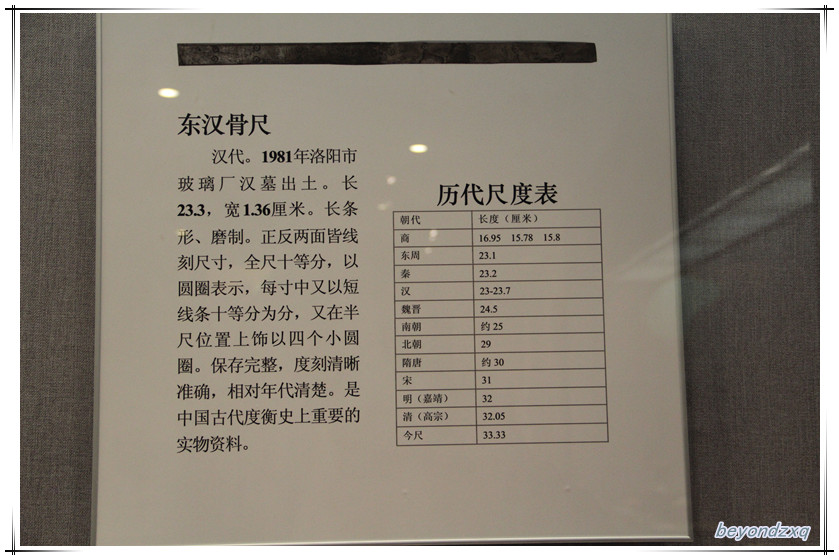 东汉骨尺
汉代。1981年洛阳市
玻璃厂汉墓出土。长
23.3，宽1.36厘米。长条
形、磨制。正反两面皆线
刻尺寸，全尺十等分，以
圆圈表示，每寸中又以短
线条十等分为分，又在半
尺位置上饰以四个小圆
圈。保存完整，度刻清晰
准确，相对年代清楚。是
中国古代度衡史上重要的
实物资料。
历代尺度表
朝代 长度（厘米）
商 16.95 15.78 15.8
东周 23.1
秦 23.2
汉 23-23.7
魏晋 24.5
南朝 约 25
北朝 29
隋唐 约 30
宋 31
明（嘉靖） 32
清（高宗） 32.05
今尺 33.33
beyondzxq